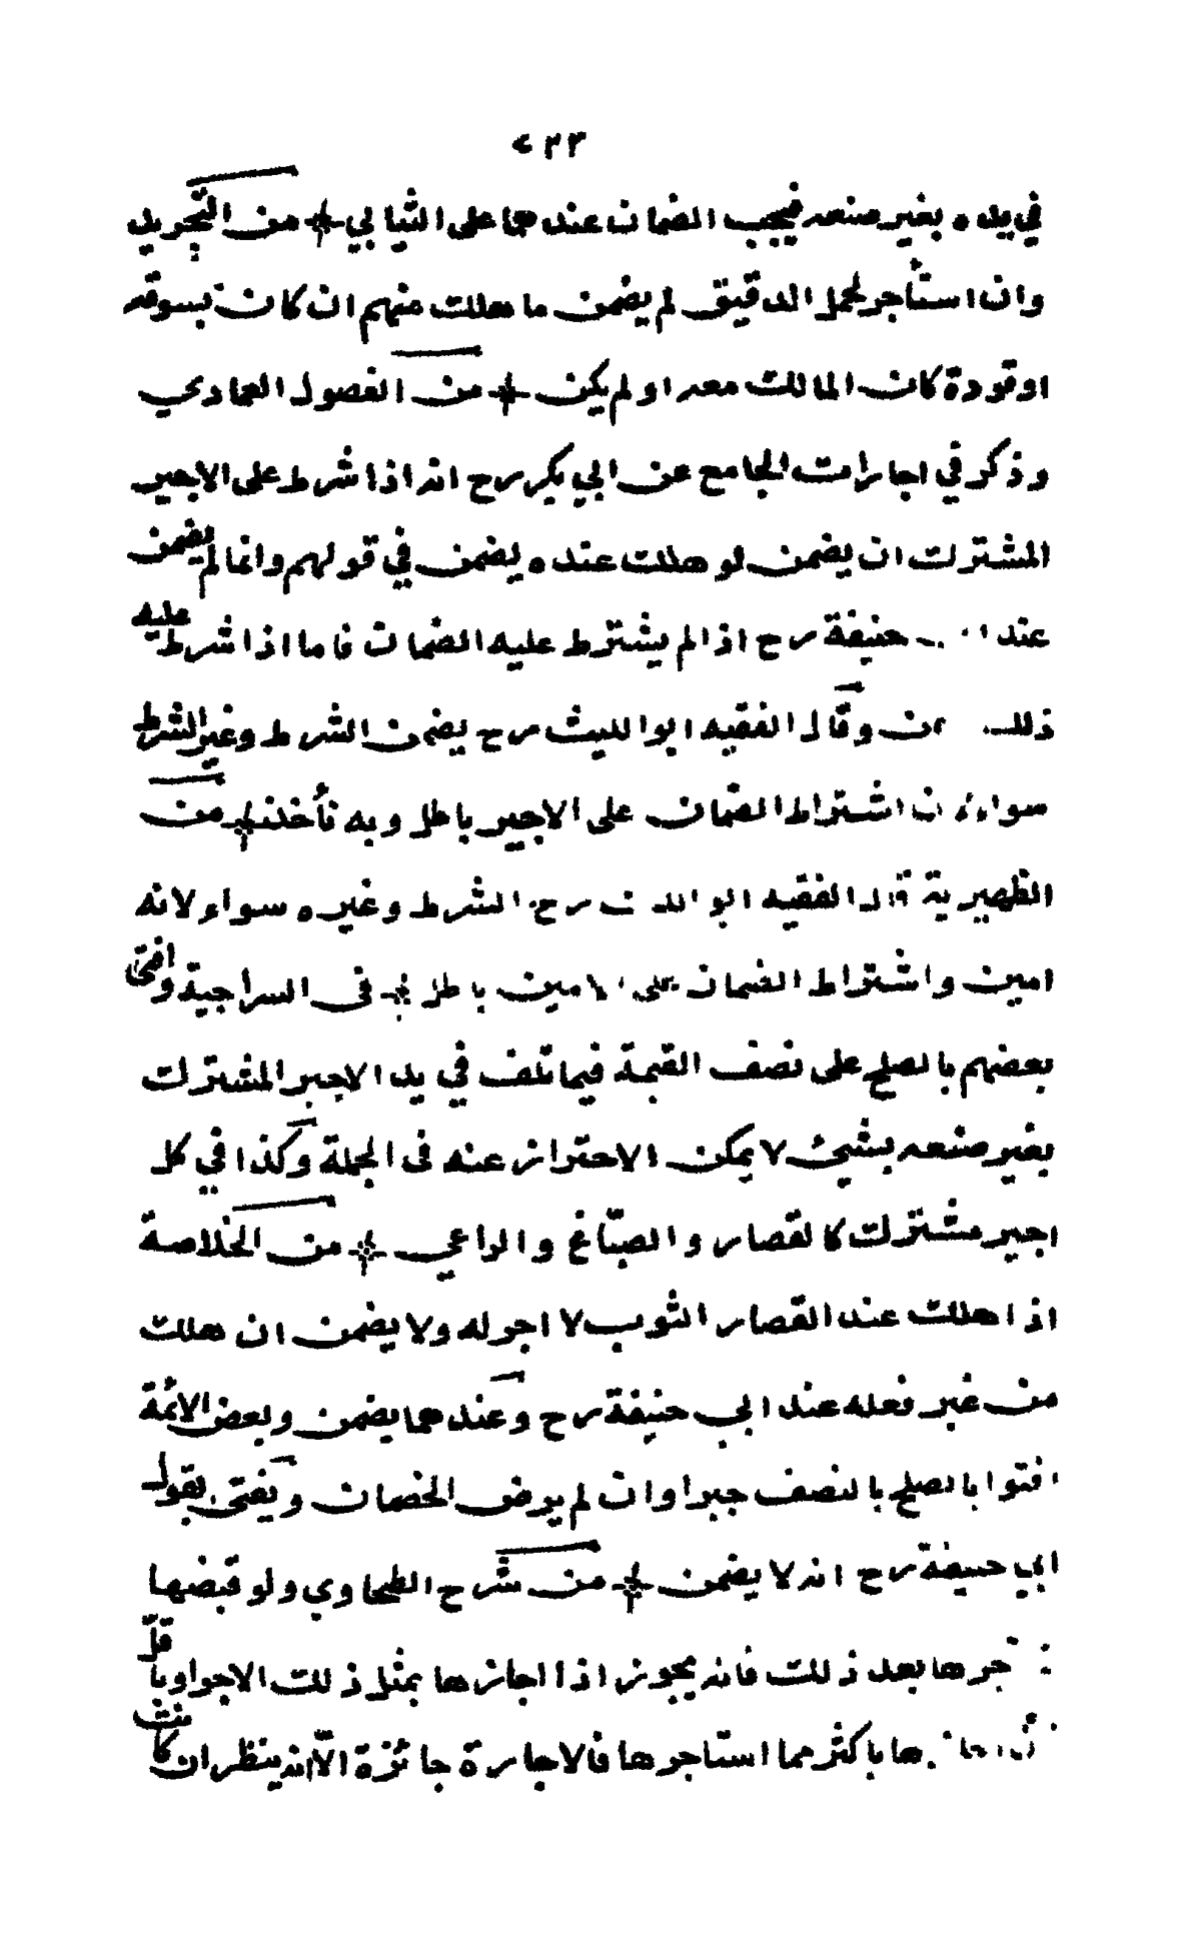 ٧٣٣
في يده بغير صنعه فيجب الضمان عندهما على الثيابي من التجريد
وان استأجر لحمل الدقيق لم يضمن ما هلك منهم ان كان بسوقه
او قوده كان المالك معه او لم يكن من الفصول العمادي
وذكر في اجارات الجامع عن ابي بكر رح انه اذا شرط على الاجير
المشترك ان يضمن لو هلك عنده يضمن في قولهم وانما لم يضمن
عند حنيفة رح اذا لم يشترط عليه الضمان فاما اذا شرط عليه
ذلك وقال الفقيه ابو الليث رح يضمن الشرط وغير الشرط
سواء اشتراط الضمان على الاجير باطل وبه نأخذ من
الظهيرية قال الفقيه ابو الليث رح الشرط وغيره سواء لانه
امين واشتراط الضمان على الامين باطل فى السراجية وافتى
بعضهم بالصلح على نصف القيمة فيما تلف في يد الاجير المشترك
بغير صنعه بشيئ لا يمكن الاحتراز عنه فى الجملة وكذا في كل
اجير مشترك كالقصار والصبّاغ والراعي من الخلاصة
اذا هلك عند القصار الثوب لا اجر له ولا يضمن ان هلك
من غير فعله عند ابي حنيفة رح وعندهما يضمن وبعض الائمة
افتوا بالصلح بالنصف جبرا وان لم يرض الخصمان ويفتى بقول
ابي حنيفة رح انه لا يضمن من شرح الطحاوي ولو قبضها
جرها بعد ذلك فانه يجوز اذا اجازها بمثل ذلك الاجر او باقلّ
ها باكثر مما استاجرها فالاجارة جائزة الّا انه ينظر ان كانت